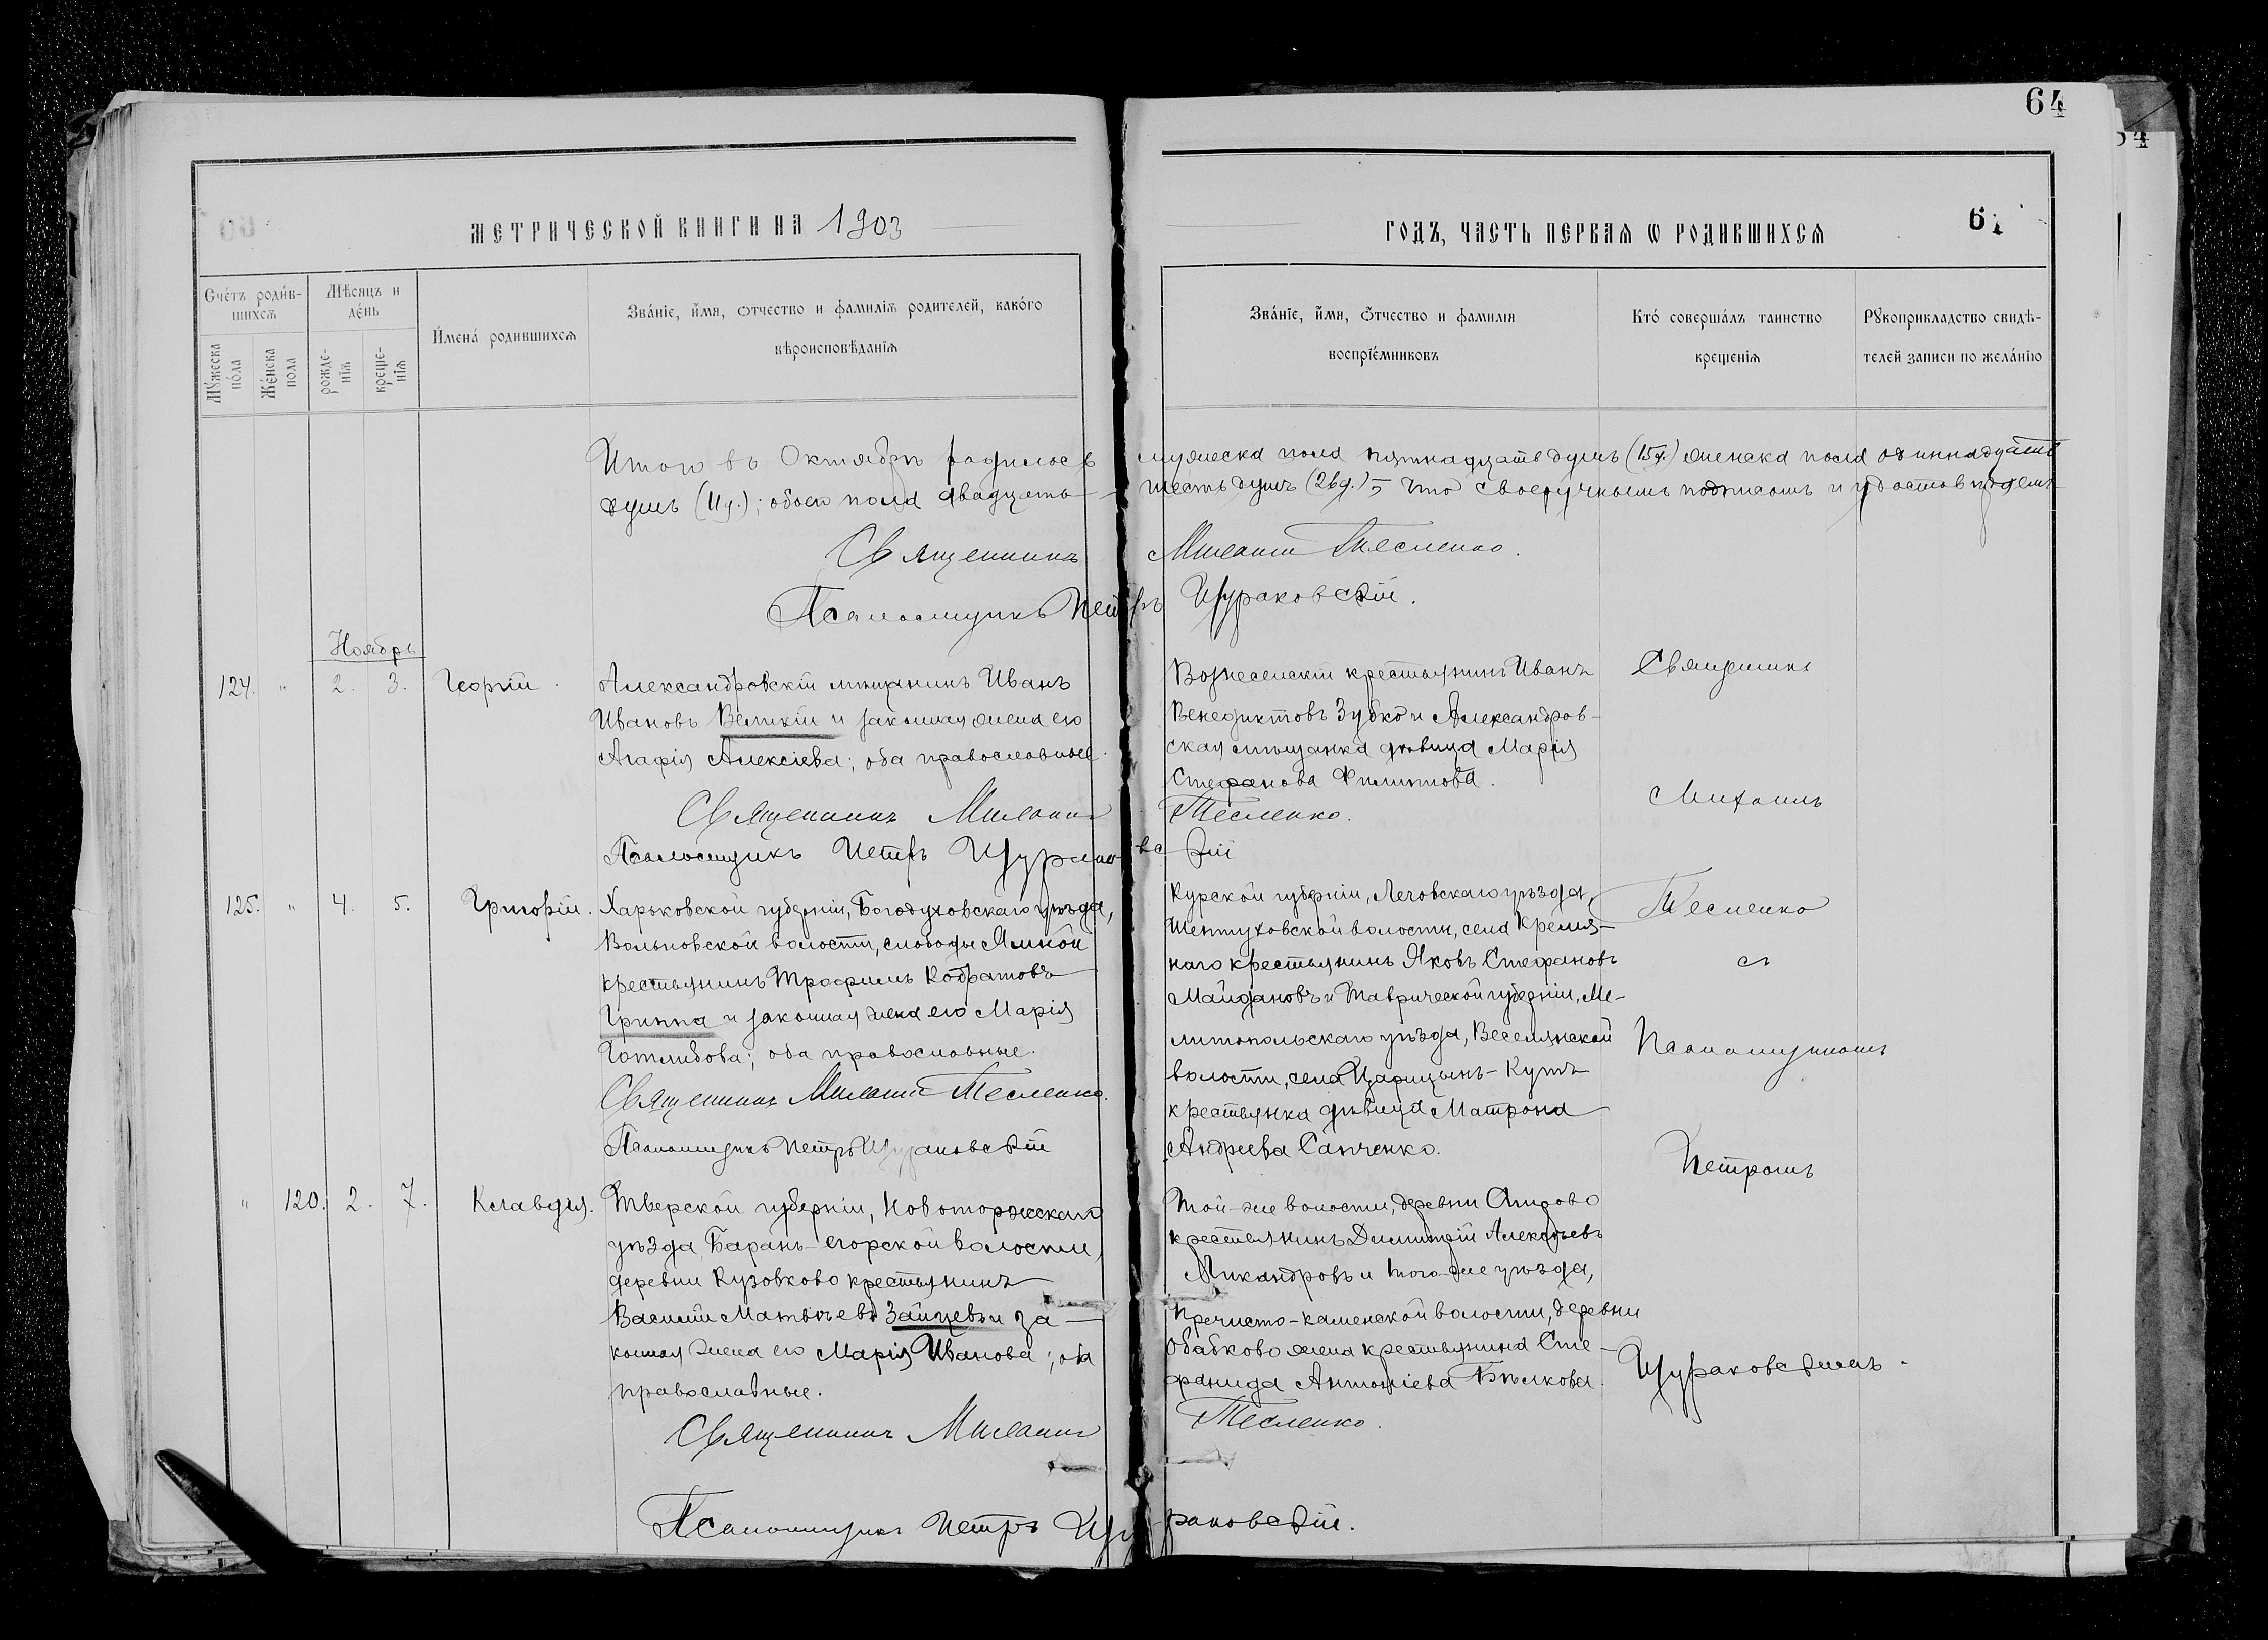 64
МЕТРИЧЕСКОЙ КНИГИ НА 1903
ГОДЪ, ЧАСТЬ ПЕРВАЯ Ѡ РОДИВШИХСЯ
61
Счéтъ роди́в-
шихсѧ
Мѣсяцъ и
дéнь
Мꙋ́жеска
по́ла
Же́нска
пола
рожде-
нія
креще-
нія
И҆мена́ родившихсѧ
Зва́нїе, и҆́мя, ѻтчество и фамилїѧ родителей, како́го
вѣроисповѣданїѧ
Зва́нїе, и҆́мя, ѻтчество и фамилїя
воспрїе́мниковъ
Кто́ соверша́лъ таинство
крещенїѧ
Рꙋкоприкладство свидѣ-
телей записи по жела́нїю
Итого въ Октябрѣ родилось мужеска пола пятнадцать душъ (15 д.) женска пола одиннадцать
душъ (11 д.); обоего пола двадцать шесть душъ (26 д.) Что своеручнымъ подписомъ и удостовѣряемъ
Священникъ Тесленко.
Псаломщикъ Петръ Щураковскій.
Ноябрь
124. " 2. 3. Георгій.
Александровскій мѣщанинъ Иванъ
Ивановъ Великій и законная жена его
Агафія Алексіева; оба православные.
Священникъ
Псаломщикъ Петръ Щураковскій
Вознесенскій крестьянинъ Иванъ
Венедиктовъ Зубко и Александров-
ская мѣщанка дѣвица Марія
Стефанова Филиппова.
Тесленко.
Священникъ
Михаилъ
Тесленко
съ
Псаломщикомъ
Петромъ
Щураковскимъ.
125. " 4. 5. Григорій.
Харьковской губерніи, Богодуховскаго уѣзда,
Вольновской волости, слободы Ямной
крестьянинъ Трофимъ Кодратовъ
Гринпа и законная жена его Марія
Готлибова; оба православные.
Священникъ Тесленко.
Псаломщикъ Петръ Щураковскій
Курской губерніи, Льговскаго уѣзда,
Шептуховской волости, села Кремя-
наго крестьянинъ Яковъ Стефановъ
Майдановъ и Таврической губерніи, Ме-
литопольскаго уѣзда, Веселянской
волости, села Царицынъ-Кутъ
крестьянка дѣвица Матрона
Андреева Сапченко.
" 120. 2. 7. Клавдія.
Тверской губерніи, Новоторжскаго
уѣзда Баранье-горской волости,
деревни Кузовково крестьянинъ
Василій Матвѣевъ Зайцевъ и за-
конная жена его Марія Иванова; оба
православные.
Священникъ
Псаломщикъ Петръ Щураковскій.
Той-же волости, деревни
крестьянинъ Димитрій Алексѣевъ
Никандровъ и того-же уѣзда,
Пречисто-каменской волости, деревни
Обабково жена крестьянина Сте-
фанида Антоніева Бѣлкова.
Тесленко.